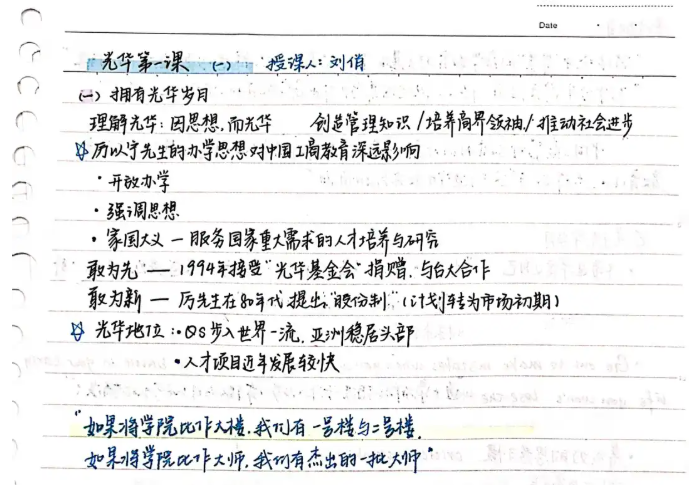 Date
"光华第一课 (一)" 授课人：刘俏
(一) 拥有光华岁月
理解光华：因思想，而光华 创造管理知识/培养商界领袖/推动社会进步
☆ 厉以宁先生的办学思想对中国工商教育深远影响
· 开放办学
· 强调思想
· 家国大义 — 服务国家重大需求的人才培养与研究
敢为先 — 1994年接受"光华基金会"捐赠，与台大合作
敢为新 — 厉先生在80年代提出"股份制"(计划转为市场初期)
☆ 光华地位：·QS步入世界一流，亚洲稳居头部
·人才项目近年发展较快
"如果将学院比作大楼，我们有一号楼与二号楼，
如果将学院比作大师，我们有杰出的一批大师"